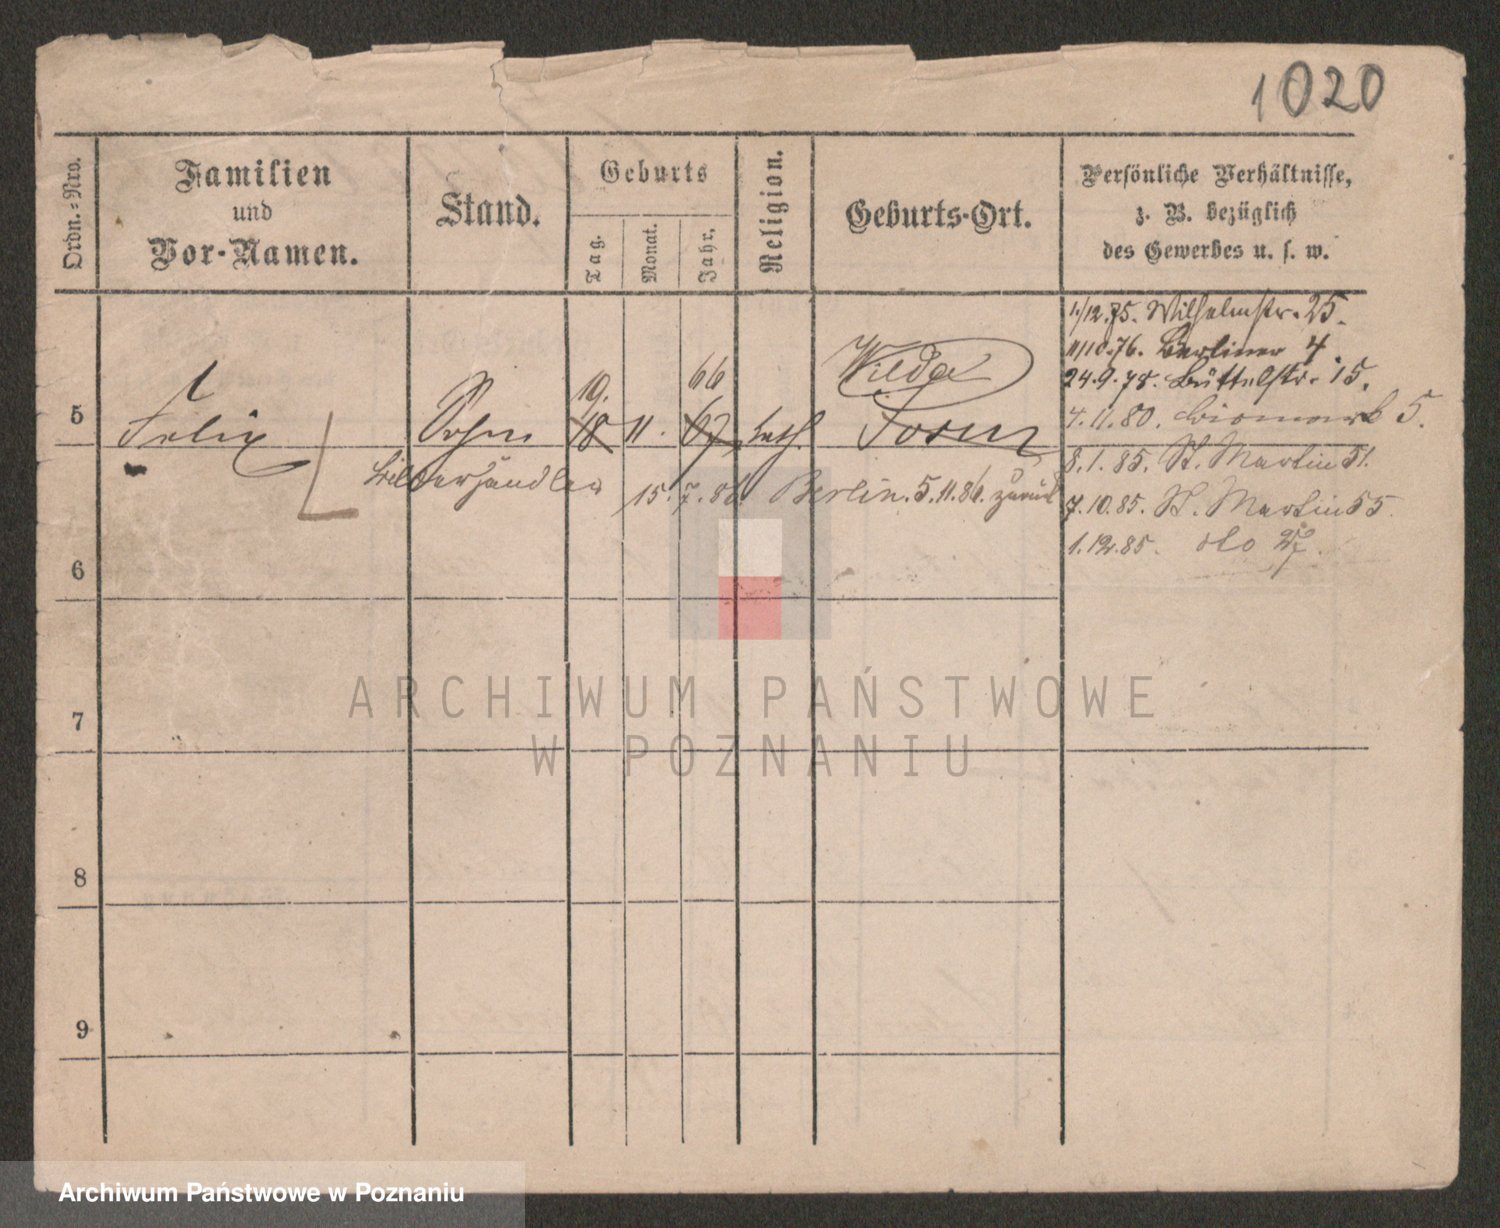 1020
Ordn.-Nro.
Familien
und
Vor-Namen.
Stand.
Geburts
Tag.
Monat.
Jahr.
Religion.
Geburts-Ort.
Persönliche Verhältnisse,
z. B. bezüglich
des Gewerbes u. s. w.
1/12.75. Wilhelmstr. 25.
11/10.76. Berliner 4
24.9.78. Büttelstr. 15.
4.11.80. Bismark 5.
8.1.85. St. Martin 51.
7.10.85. St. Martin 55
1.12.85. dto 27.
19. 66 Wilda
5 Felix Sohn 18 11. 67 kath. Posen
15.7.86 Berlin. 5.11.86. zurück
6
7
8
9
ARCHIWUM PAŃSTWOWE
W POZNANIU
Archiwum Państwowe w Poznaniu